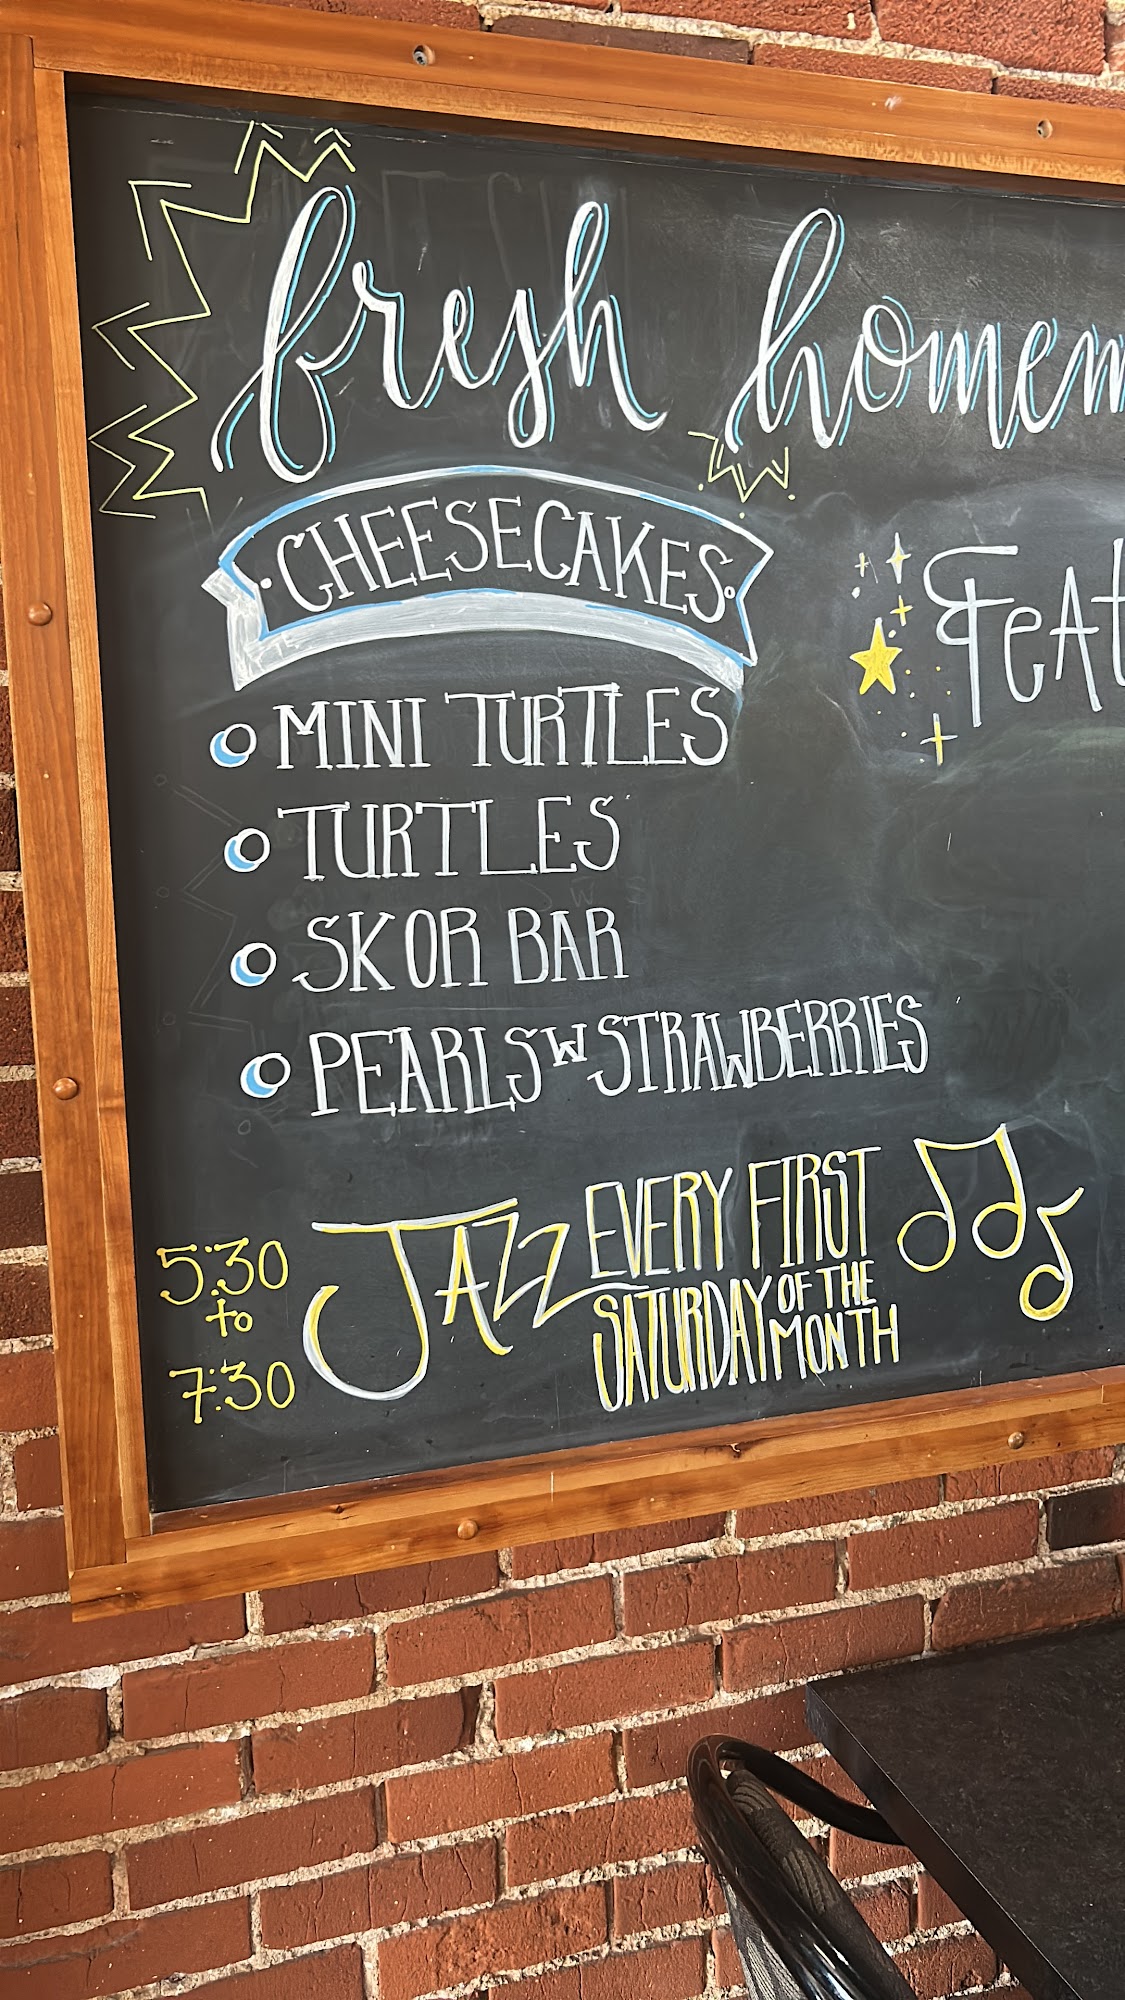 fresh homem
CHEESECAKES
Feat
MINI TURTLES
TURTLES
SKOR BAR
PEARLS W STRAWBERRIES
5:30
to
7:30
JAZZ
EVERY FIRST
SATURDAY OF THE
MONTH